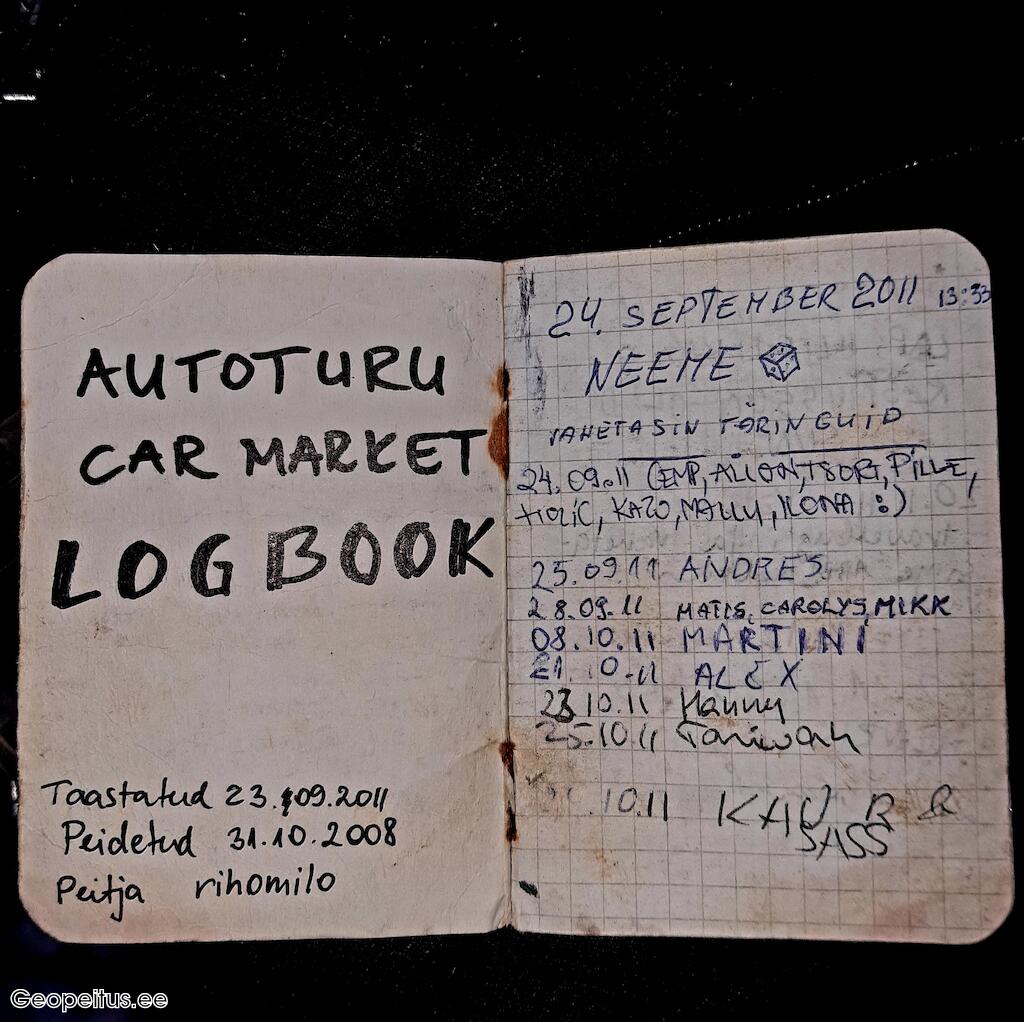 AUTOTURU
CAR MARKET
LOGBOOK
Taastatud 23.09.2011
Peidetud 31.10.2008
Peitja rihomilo
24. SEPTEMBER 2011 13:33
NEEME
VAHETASIN TÄRINGUID
24.09.11 CEMP, ALLON, TSORI, PILLE,
KAZO, MALLU, ILONA :)
25.09.11 ANDRES
28.09.11 MATIS, CAROLYS, MIKK
08.10.11 MARTINI
21.10.11 ALEX
23.10.11 Hanny
25.10.11
.10.11 KAUR &
SASS
Geopeitus.ee